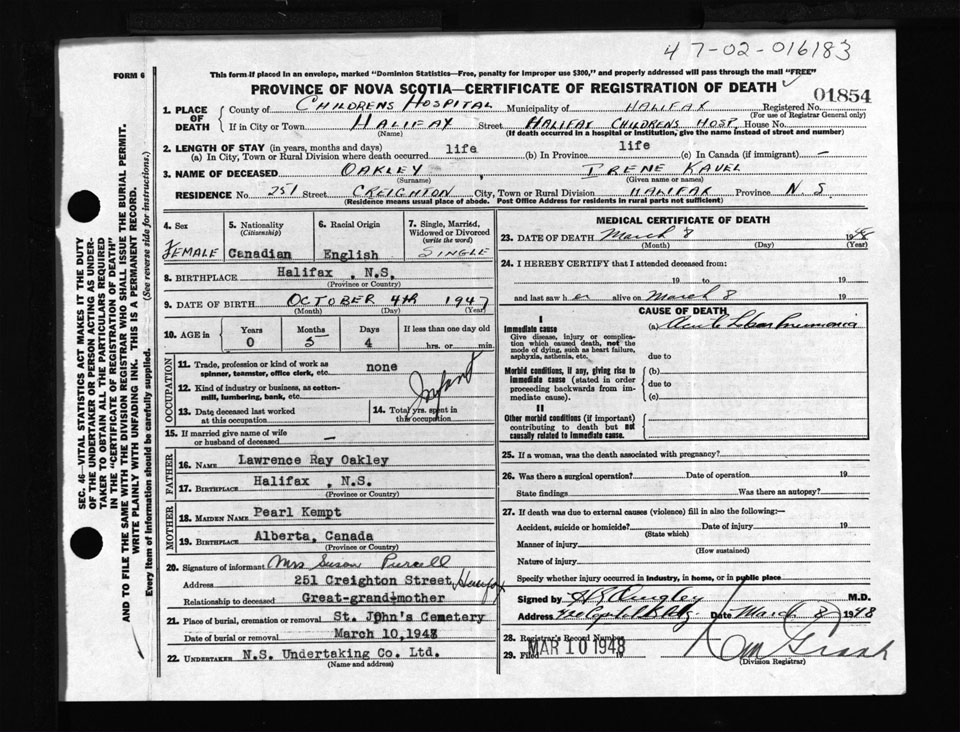 47-02-016183
FORM 6
This form if placed in an envelope, marked "Dominion Statistics—Free, penalty for improper use $300," and properly addressed will pass through the mail "FREE"
PROVINCE OF NOVA SCOTIA—CERTIFICATE OF REGISTRATION OF DEATH
01854
1. PLACE OF DEATH
County of CHILDRENS HOSPITAL Municipality of HALIFAX Registered No.
(For use of Registrar General only)
If in City or Town HALIFAX Street HALIFAX CHILDRENS HOSP. House No.
(Name) (If death occurred in a hospital or institution, give the name instead of street and number)
2. LENGTH OF STAY (in years, months and days)
(a) In City, Town or Rural Division where death occurred life (b) In Province life (c) In Canada (if immigrant) —
3. NAME OF DECEASED OAKLEY, IRENE
(Surname) (Given name or names)
RESIDENCE No. 251 Street CREIGHTON City, Town or Rural Division HALIFAX Province N.S
(Residence means usual place of abode. Post Office Address for residents in rural parts not sufficient)
4. Sex
FEMALE
5. Nationality
(Citizenship)
Canadian
6. Racial Origin
English
7. Single, Married, Widowed or Divorced
(write the word)
SINGLE
8. BIRTHPLACE Halifax , N.S.
(Province or Country)
9. DATE OF BIRTH OCTOBER 4TH 1947
(Month) (Day) (Year)
10. AGE in
Years Months Days If less than one day old
0 5 4 hrs. or min.
OCCUPATION
11. Trade, profession or kind of work as spinner, teamster, office clerk, etc. none
12. Kind of industry or business, as cotton-mill, lumbering, bank, etc.
Infant
13. Date deceased last worked at this occupation
14. Total yrs. spent in this occupation
15. If married give name of wife or husband of deceased —
FATHER
16. NAME Lawrence Ray Oakley
17. BIRTHPLACE Halifax , N.S.
(Province or Country)
MOTHER
18. MAIDEN NAME Pearl Kempt
19. BIRTHPLACE Alberta, Canada
(Province or Country)
20. Signature of informant Mrs Susan Purcell
Address 251 Creighton Street, Halifax
Relationship to deceased Great-grand-mother
21. Place of burial, cremation or removal St. John's Cemetery
Date of burial or removal March 10, 1948
22. UNDERTAKER N.S. Undertaking Co. Ltd.
(Name and address)
MEDICAL CERTIFICATE OF DEATH
23. DATE OF DEATH March 8 1948
(Month) (Day) (Year)
24. I HEREBY CERTIFY that I attended deceased from:
19 to 19
and last saw her alive on March 8 19
CAUSE OF DEATH
I
Immediate cause
Give disease, injury or complication which caused death, not the mode of dying, such as heart failure, asphyxia, asthenia, etc.
(a) Acute Lobar Pneumonia
due to
Morbid conditions, if any, giving rise to immediate cause (stated in order proceeding backwards from immediate cause).
(b)
due to
(c)
II
Other morbid conditions (if important) contributing to death but not causally related to immediate cause.
25. If a woman, was the death associated with pregnancy?
26. Was there a surgical operation? Date of operation 19
State findings Was there an autopsy?
27. If death was due to external causes (violence) fill in also the following:—
Accident, suicide or homicide? Date of injury 19
(State which)
Manner of injury
(How sustained)
Nature of injury
Specify whether injury occurred in industry, in home, or in public place
Signed by M.D.
Address Date March 8 1948
28. Registrar's Record Number
29. Filed MAR 10 1948 19
(Division Registrar)
SEC. 46—VITAL STATISTICS ACT MAKES IT THE DUTY
OF THE UNDERTAKER OR PERSON ACTING AS UNDER-
TAKER TO OBTAIN ALL THE PARTICULARS REQUIRED
IN THE "CERTIFICATE OF REGISTRATION OF DEATH"
AND TO FILE THE SAME WITH THE DIVISION REGISTRAR WHO SHALL ISSUE THE BURIAL PERMIT.
WRITE PLAINLY WITH UNFADING INK. THIS IS A PERMANENT RECORD.
Every item of information should be carefully supplied. (See reverse side for instructions.)